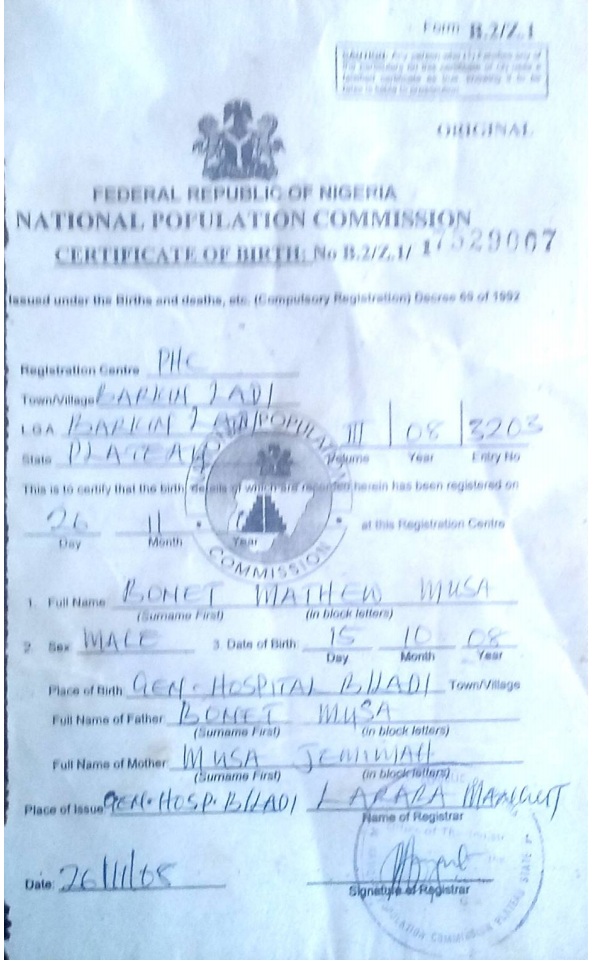 Form B.2/Z.1
ORIGINAL
FEDERAL REPUBLIC OF NIGERIA
NATIONAL POPULATION COMMISSION
CERTIFICATE OF BIRTH: No B.2/Z.1/ 17529007
Issued under the Births and deaths, etc. (Compulsory Registration) Decree 69 of 1992
Registration Centre PHC
Town/Village BARKIN LADI
L.G.A BARKIN LADI III 08 3203
State PLATEAU Volume Year Entry No
This is to certify that the birth details of which are recorded herein has been registered on
26 11 at this Registration Centre
Day Month Year
NATIONAL POPULATION COMMISSION
1. Full Name BONET MATHEW MUSA
(Surname First) (in block letters)
2 Sex MALE 3 Date of Birth 15 10 08
Day Month Year
Place of Birth GEN. HOSPITAL B/LADI Town/Village
Full Name of Father BONET MUSA
(Surname First) (in block letters)
Full Name of Mother MUSA
(Surname First) (in block letters)
Place of Issue GEN. HOSP. B/LADI LARABA MANGUT
Name of Registrar
Date: 26/11/08
Signature of Registrar